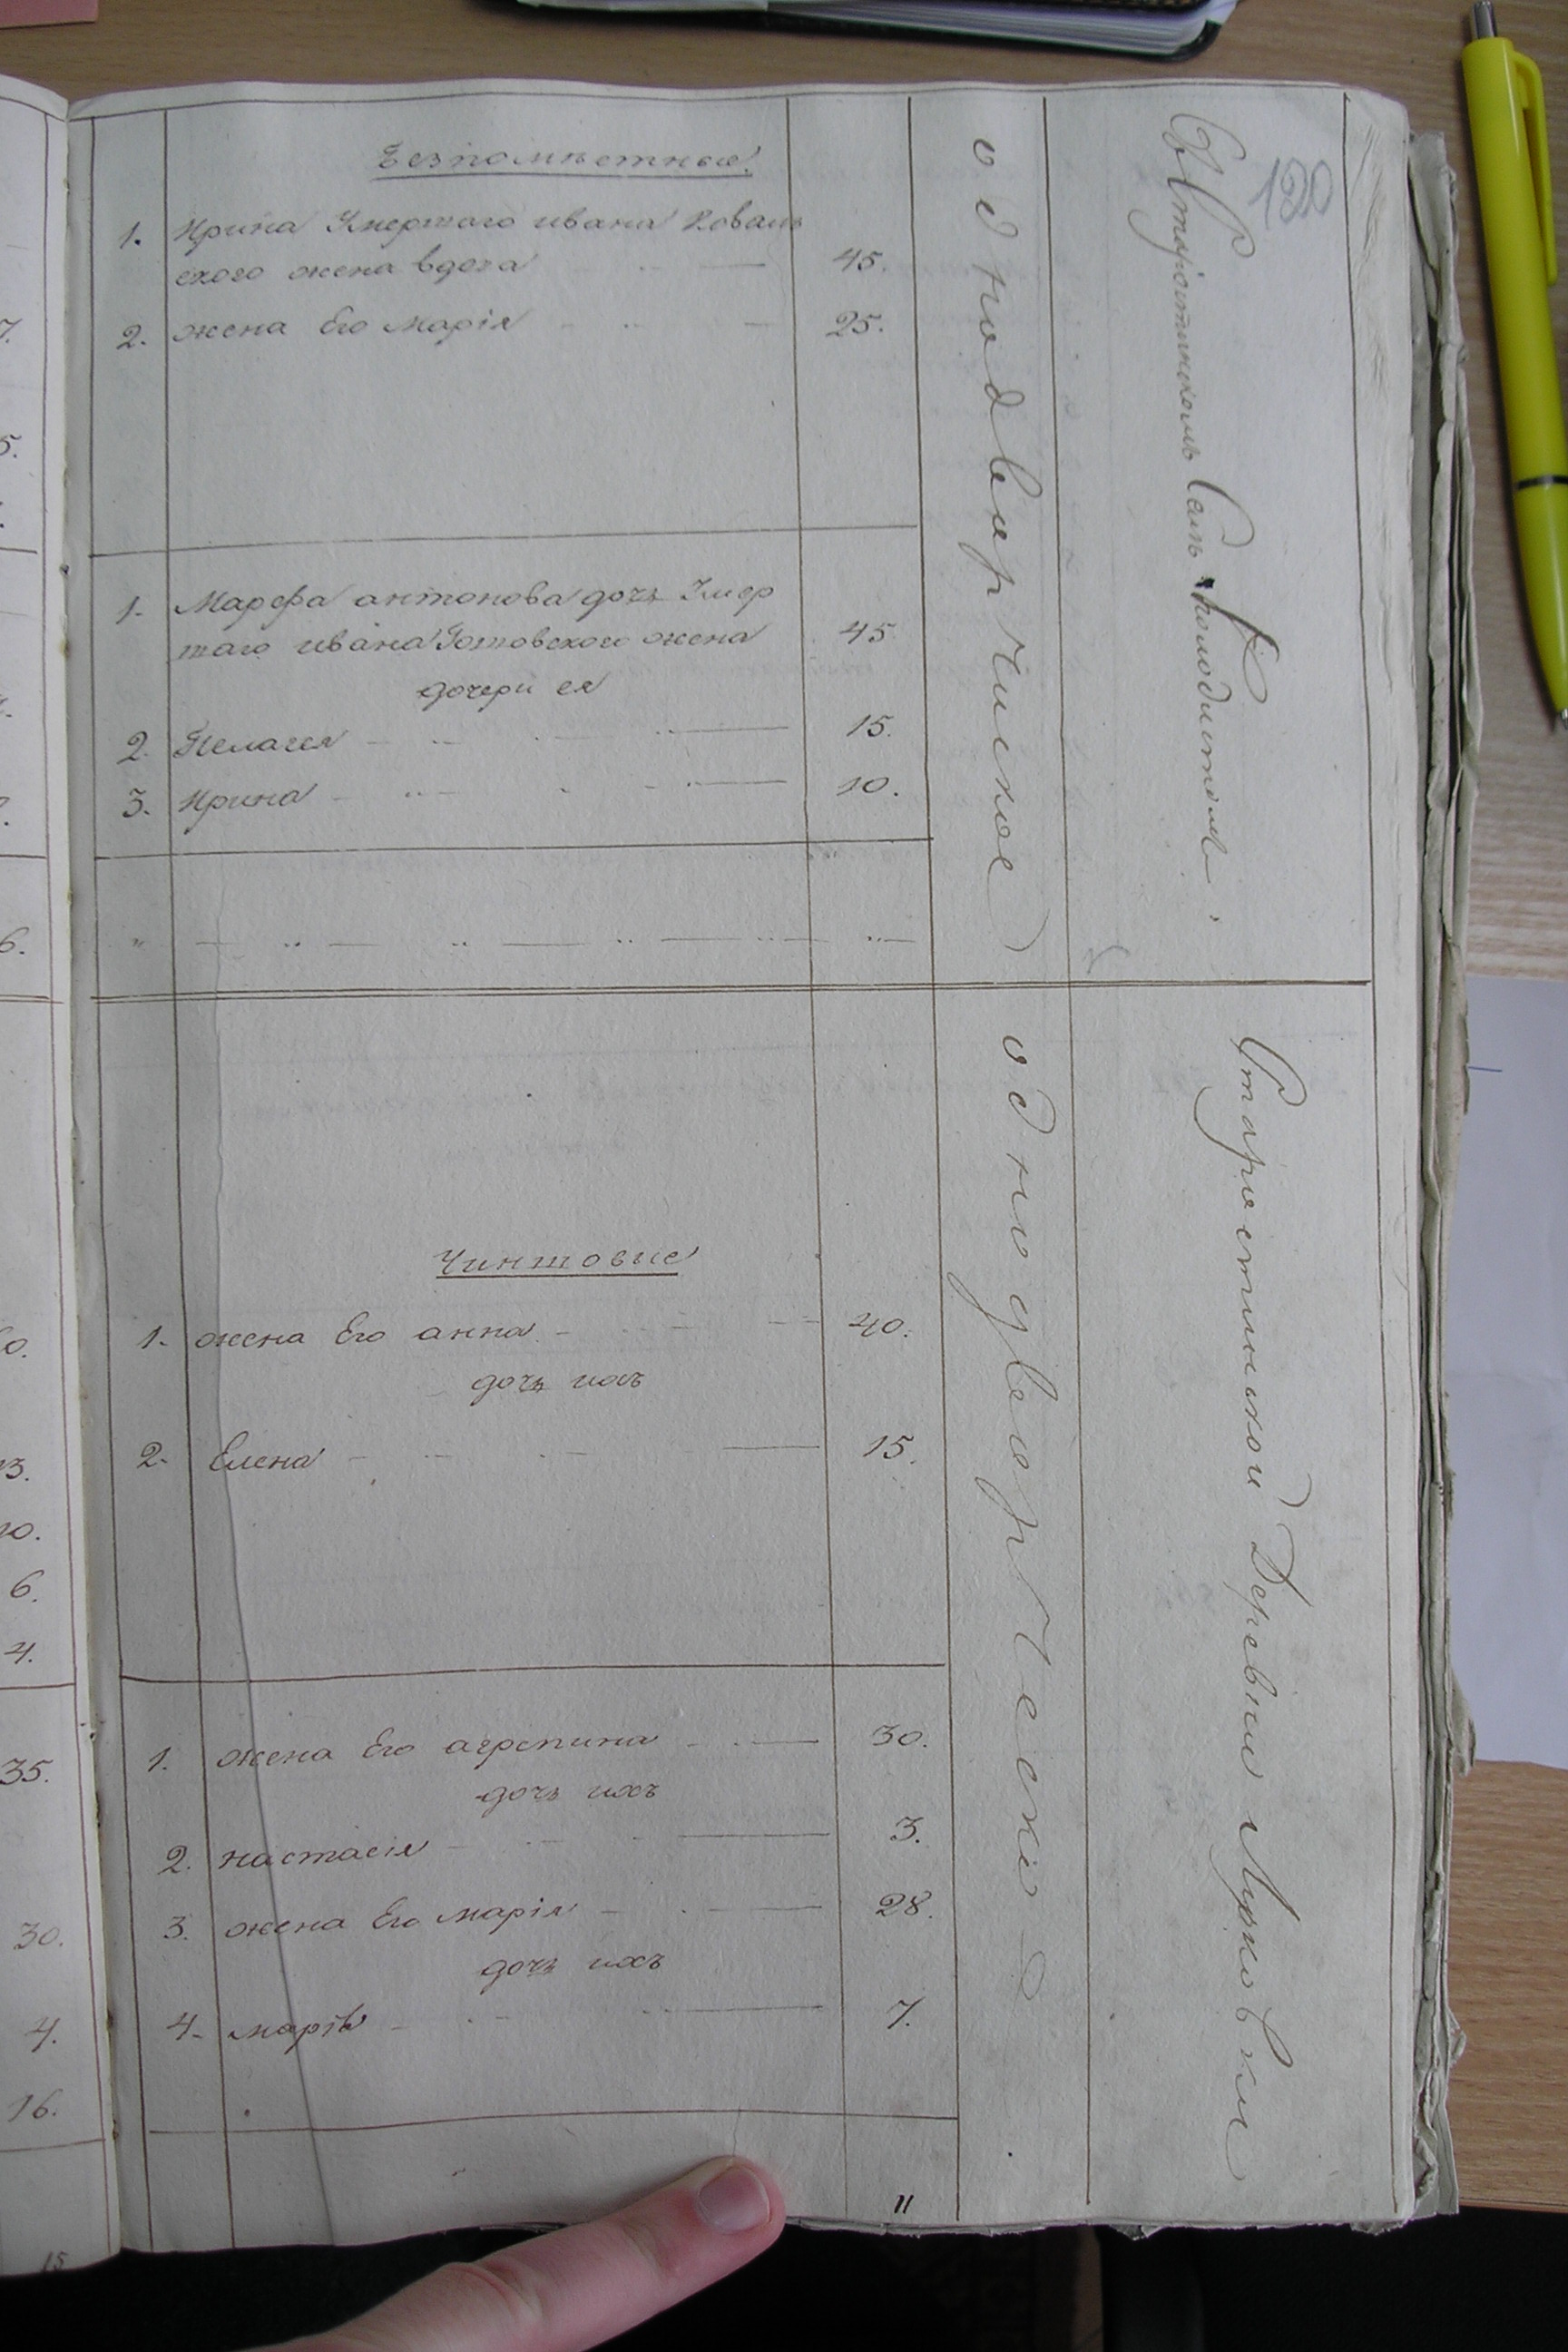 120
Безпоместные
1. Ирина Умершаго ивана Коваль
ского жена вдова 45.
2. жена Его Марія 25.
1. Марефа антонова дочь Умер
шаго ивана Готовского жена 45
дочери ея
2. Пелагея 15.
3. Ирина 10.
однодворческое
Чиншовые
1. жена Его анна 40.
дочь ихъ
2. Елена 15.
1. жена Его агрепина 30.
дочь ихъ
2. настасія 3.
3. жена Его марія 28.
дочь ихъ
4. марія 7.
однодворческое
Старостинской Деревни Лурковки
11
7.
5.
6.
13.
10.
6.
4.
35.
30.
4.
16.
15